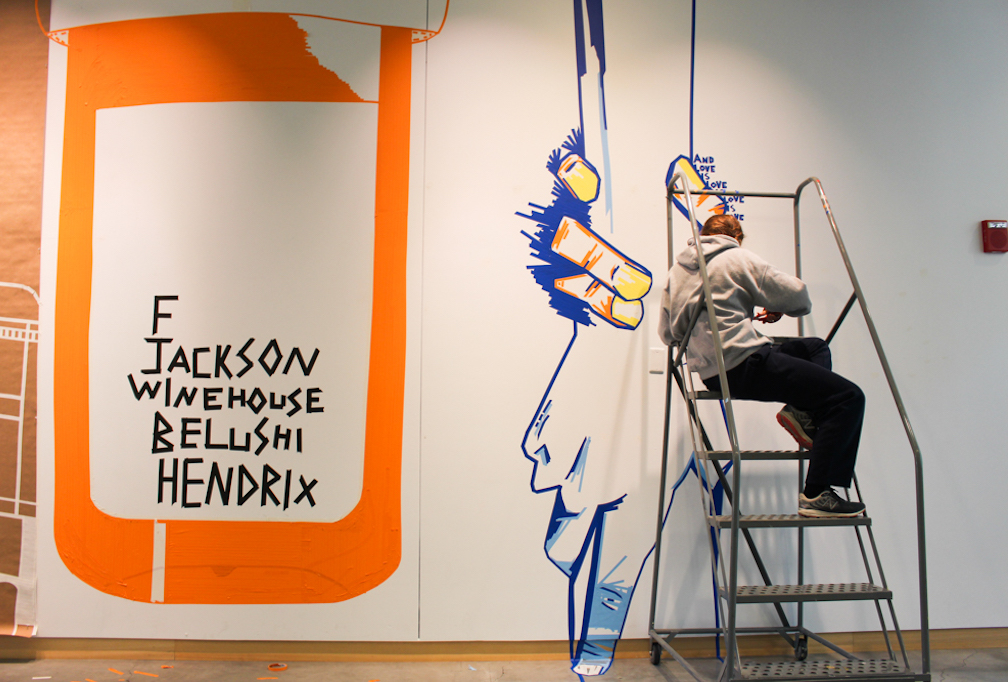 F
JACKSON
WINEHOUSE
BELUSHI
HENDRIX
AND
LOVE
IS
LOVE
LOVE
IS